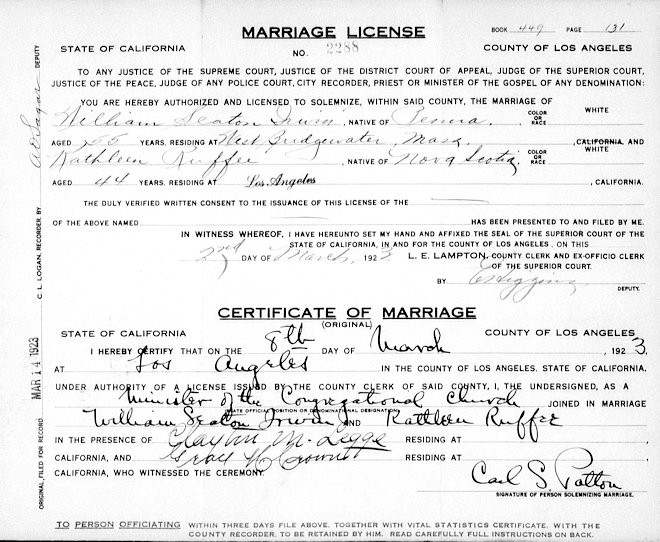 MARRIAGE LICENSE
BOOK 449 PAGE 131
STATE OF CALIFORNIA
NO. 2288
COUNTY OF LOS ANGELES
TO ANY JUSTICE OF THE SUPREME COURT, JUSTICE OF THE DISTRICT COURT OF APPEAL, JUDGE OF THE SUPERIOR COURT,
JUSTICE OF THE PEACE, JUDGE OF ANY POLICE COURT, CITY RECORDER, PRIEST OR MINISTER OF THE GOSPEL OF ANY DENOMINATION:
YOU ARE HEREBY AUTHORIZED AND LICENSED TO SOLEMNIZE, WITHIN SAID COUNTY, THE MARRIAGE OF
William Seaton Irwin, NATIVE OF Penna. COLOR OR RACE WHITE
AGED 55 YEARS, RESIDING AT West Bridgewater, Mass., CALIFORNIA, AND
Kathleen Ruffee, NATIVE OF Nova Scotia, COLOR OR RACE WHITE
AGED 44 YEARS, RESIDING AT Los Angeles, CALIFORNIA.
THE DULY VERIFIED WRITTEN CONSENT TO THE ISSUANCE OF THIS LICENSE OF THE
OF THE ABOVE NAMED HAS BEEN PRESENTED TO AND FILED BY ME.
IN WITNESS WHEREOF, I HAVE HEREUNTO SET MY HAND AND AFFIXED THE SEAL OF THE SUPERIOR COURT OF THE
STATE OF CALIFORNIA, IN AND FOR THE COUNTY OF LOS ANGELES, ON THIS
2nd DAY OF March, 192 L. E. LAMPTON, COUNTY CLERK AND EX-OFFICIO CLERK
OF THE SUPERIOR COURT.
BY Higgins
DEPUTY.
CERTIFICATE OF MARRIAGE
(ORIGINAL)
STATE OF CALIFORNIA
COUNTY OF LOS ANGELES
I HEREBY CERTIFY THAT ON THE 8th DAY OF March, 1923
AT Los Angeles IN THE COUNTY OF LOS ANGELES, STATE OF CALIFORNIA.
UNDER AUTHORITY OF A LICENSE ISSUED BY THE COUNTY CLERK OF SAID COUNTY, I, THE UNDERSIGNED, AS A
Minister of the Congregational Church JOINED IN MARRIAGE
STATE OFFICIAL POSITION OR DENOMINATIONAL DESIGNATION
William Seaton Irwin AND Kathleen Ruffee
IN THE PRESENCE OF Clayton M. Legge RESIDING AT
CALIFORNIA, AND RESIDING AT
CALIFORNIA, WHO WITNESSED THE CEREMONY.
Carl S. Patton
SIGNATURE OF PERSON SOLEMNIZING MARRIAGE.
TO PERSON OFFICIATING WITHIN THREE DAYS FILE ABOVE, TOGETHER WITH VITAL STATISTICS CERTIFICATE, WITH THE
COUNTY RECORDER, TO BE RETAINED BY HIM. READ CAREFULLY FULL INSTRUCTIONS ON BACK.
ORIGINAL, FILED FOR RECORD MAR 14 1923 C. L. LOGAN, RECORDER, BY DEPUTY